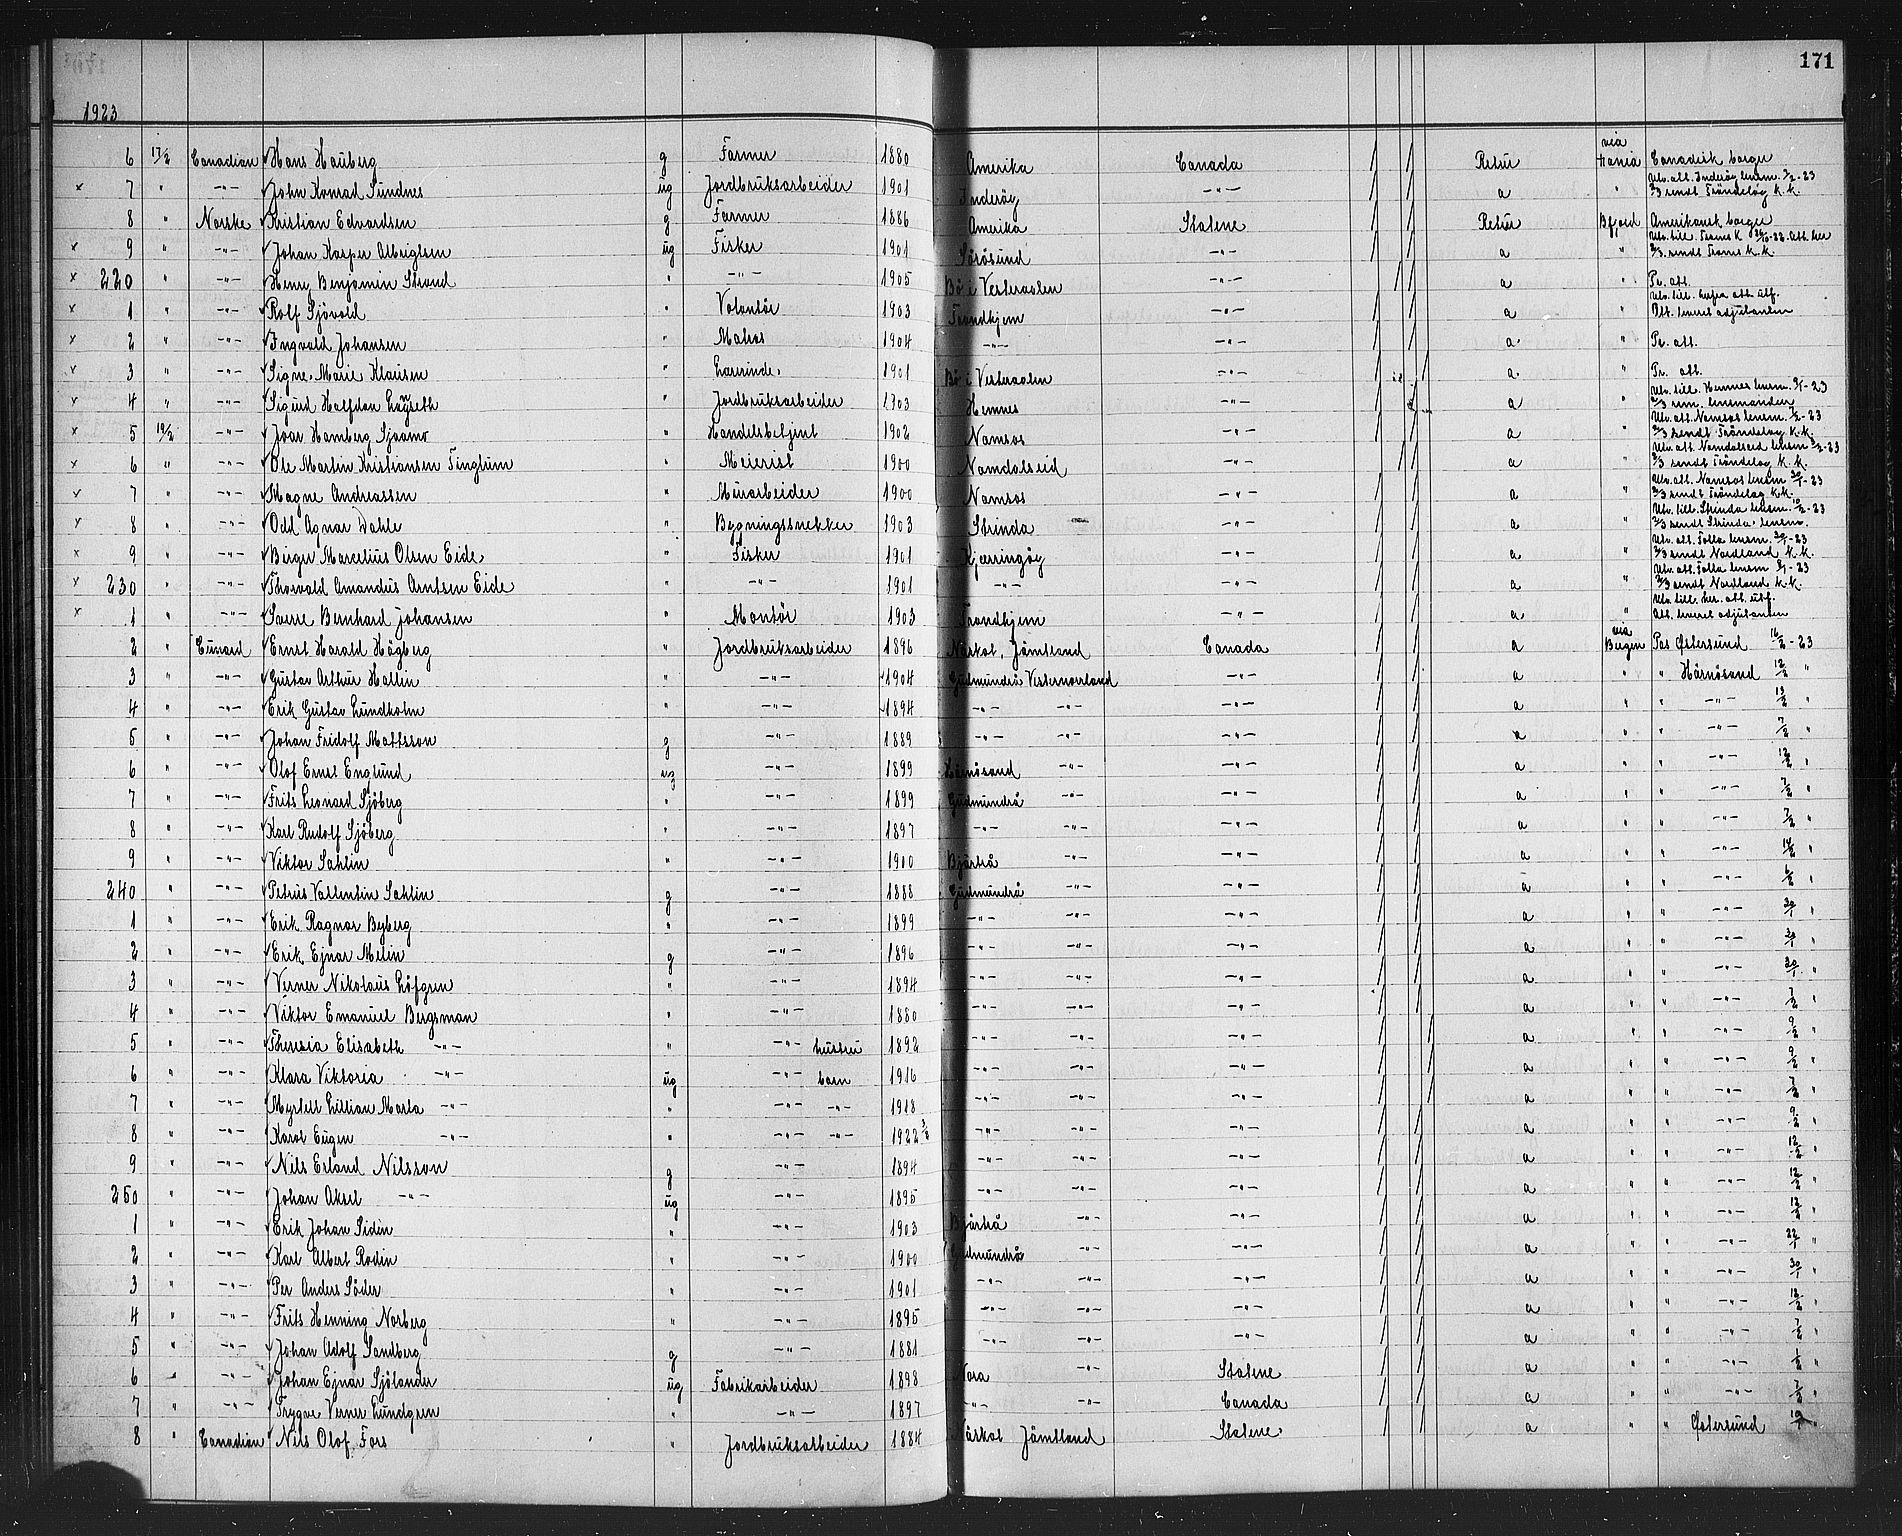 171
1923
6 17/2 Canadian Hans Hauberg g Farmer 1880 Amerika Canada Retur via Hania Canadisk borger
x 7 " -"- John Konrad Sundnes ug Jordbruksarbeider 1901 Inderøy -"- a " Utv. att. Inderøy lensm. 7/2-23 3/3 sendt Trøndelag K.K.
8 " Norske Kristian Edvardsen g Farmer 1886 Amerika Statene Retur Bfjord Amerikansk borger
x 9 " -"- Johan Kasper Albrigtsen ug Fisker 1901 Sørøsund -"- a " 3/3 sendt Troms K.K.
x 220 " -"- Henry Benjamin Strand " -"- 1905 Bø i Vesteraalen -"- a " Pr. att.
x 1 " -"- Rolf Sjövold " Volontör 1903 Trondhjem -"- a " Att. leveret adjutanten
x 2 " -"- Ingvald Johansen " Matros 1904 -"- -"- a " Pr. att.
x 3 " -"- Signe Marie Klausen " Lærerinde 1901 Bø i Vesteraalen -"- a " Pr. att.
x 4 " -"- Sigurd Halfdan Løyseth " Jordbruksarbeider 1903 Hemnes -"- a " Utv. till. Hemnes lensm. 9/1-23 lensmanden
x 5 19/2 -"- Ivar Hamberg Sjaamo " Handelsbetjent 1902 Namsos -"- a " Utv. att. Namsos lensm. 7/2-23 3/3 sendt Trøndelag K.K.
x 6 " -"- Ole Martin Kristiansen Tinglum " Meierist 1900 Namdalseid -"- a " Utv. att. Namdalseid lensm. 8/2-23 3/3 sendt Trøndelag K.K.
x 7 " -"- Magne Andreassen " Murarbeider 1900 Namsos -"- a " Utv. att. Namsos lensm. 30/1-23 3/3 sendt Trøndelag K.K.
x 8 " -"- Odd Agnar Dahle " Bygningssnekker 1903 Strinda -"- a " Utv. till. Strinda lensm. 10/2-23 3/3 sendt Strinda lensm.
x 9 " -"- Birger Marcelius Olsen Eide " Fisker 1901 Kjerringøy -"- a " Utv. att. Folla lensm. 30/1-23 3/3 sendt Nordland K.K.
x 230 " -"- Thorvald Amandus Arntsen Eide " -"- 1901 -"- -"- a " Utv. att. Folla lensm. 9/1-23 3/3 sendt Nordland K.K.
x 1 " -"- Sverre Bernhard Johansen " Montör 1903 Trondhjem -"- a " Utv. till. her. att. utf. Att. leveret adjutanten
2 " Cunard Ernst Harald Högberg " Jordbruksarbeider 1896 Näskot, Jämtland Canada a via Bergen Pas Østersund 16/2-23
3 " -"- Gustav Arthur Hallin " -"- 1904 Gudmundrå Vesternorrland -"- a " " Härnösand 12/2 "
4 " -"- Erik Gustav Lundholm " -"- 1894 -"- -"- -"- a " " -"- 13/2 "
5 " -"- Johan Fridolf Mattsson g -"- 1889 -"- -"- -"- a " " -"- 7/2 "
6 " -"- Olof Ernst Englund ug -"- 1899 Härnösand -"- -"- a " " -"- 12/2 "
7 " -"- Frits Leonard Sjöberg " -"- 1899 Gudmundrå -"- -"- a " " -"- 7/2 "
8 " -"- Karl Rudolf Sjöberg " -"- 1897 -"- -"- a " " -"- 7/2 "
9 " -"- Viktor Sahlin " -"- 1900 Bjärtrå -"- a " " -"- "
240 " -"- Petrus Vallentin Sahlin g -"- 1888 Gudmundrå -"- -"- a " " -"- 6/2 "
1 " -"- Erik Ragnar Byberg " -"- 1899 -"- -"- -"- a " " -"- 30/1 "
2 " -"- Erik Ejnar Melin g -"- 1896 -"- -"- -"- a " " -"- 30/1 "
3 " -"- Verner Nikolaus Löfgren " -"- 1894 -"- -"- -"- a " " -"- 30/1 "
4 " -"- Viktor Emanuel Bergsman " -"- 1880 -"- -"- -"- a " " -"- 7/2 "
5 " -"- Theresia Elisabeth -"- " -"- hustru 1892 -"- -"- -"- a " " -"- 9/2 "
6 " -"- Klara Viktoria -"- ug -"- barn 1916 -"- -"- -"- a " " -"- 9/2 "
7 " -"- Myrtell Lillian Marta -"- " -"- -"- 1918 -"- -"- -"- a " " -"- 7/2 "
8 " -"- Karol Eugen -"- " -"- -"- 1922 -"- -"- -"- a " " -"- 9/2 "
9 " -"- Nils Erland Nilsson g -"- 1894 -"- -"- -"- a " " -"- 12/2 "
250 " -"- Johan Aksel -"- ug -"- 1895 -"- -"- -"- a " " -"- 12/2 "
1 " -"- Erik Johan Sidén " -"- 1903 Bjärtrå -"- -"- a " " -"- 12/2 "
2 " -"- Karl Albert Rodin " -"- 1900 Gudmundrå -"- -"- a " " -"- 22/1 "
3 " -"- Per Anders Söder " -"- 1901 -"- -"- -"- a " " -"- 30/1 "
4 " -"- Frits Henning Norberg " -"- 1895 -"- -"- -"- a " " -"- 12/2 "
5 " -"- Johan Adolf Sandberg g -"- 1881 -"- -"- -"- a " " -"- 7/2 "
6 " -"- Johan Ejnar Sjölander ug Fabrikarbeider 1898 Nora -"- Statene a " " -"- 1/2 "
7 " -"- Trygve Verner Lundgren " -"- 1897 -"- -"- Canada a " " -"- 7/2 "
8 " Canadian Nils Olof Fors " Jordbruksarbeider 1884 Näskot Jämtland Statene a " " Østersund "